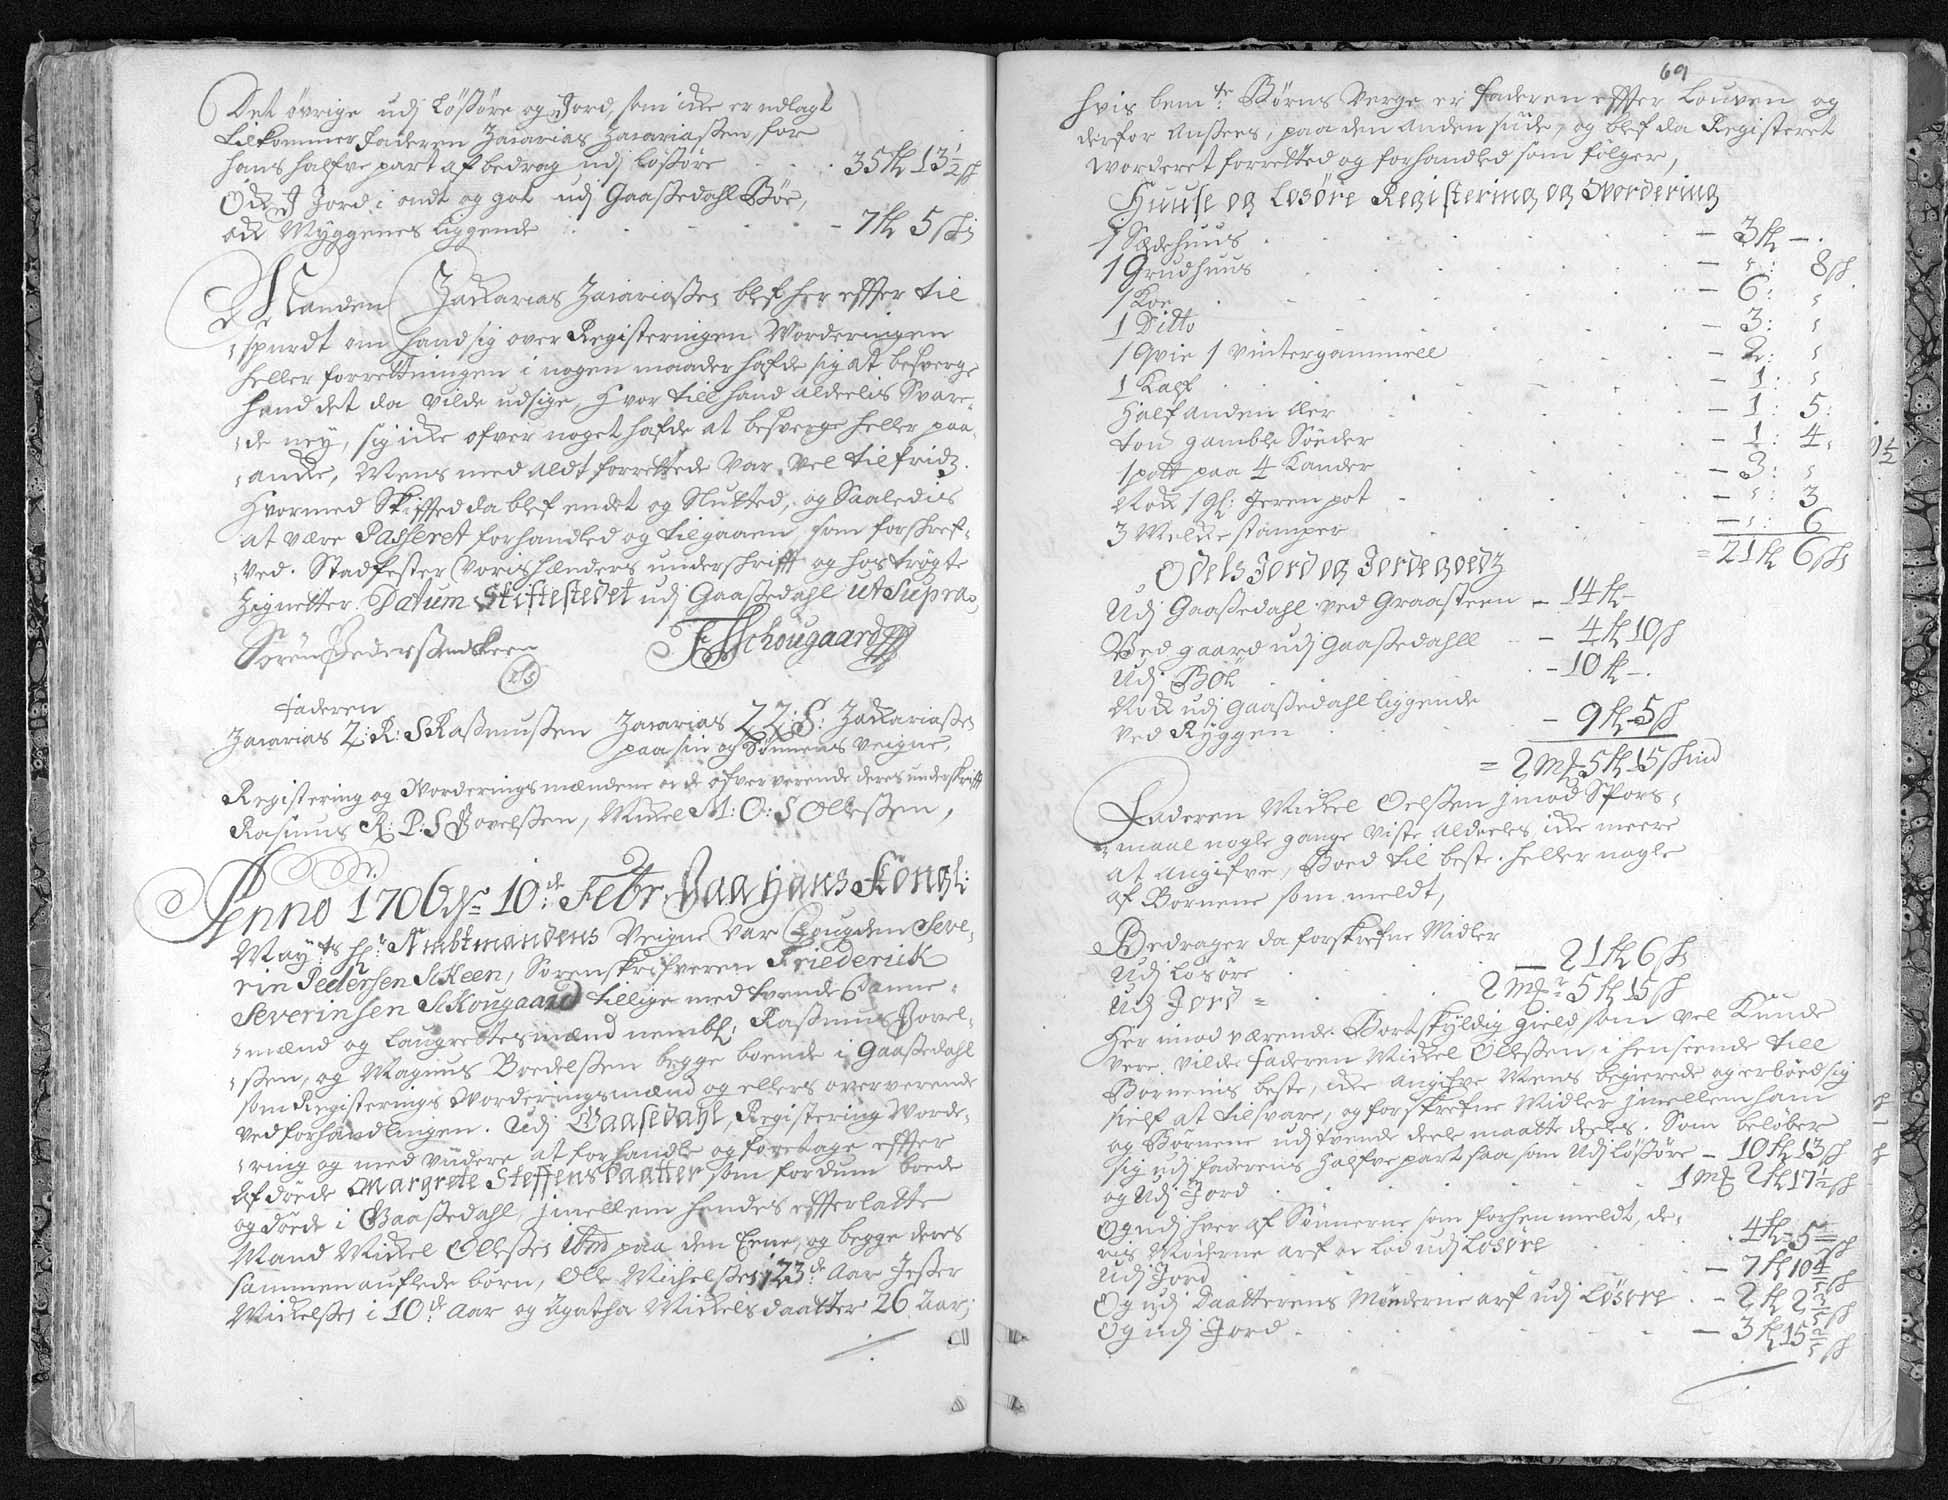 Det öfrige udj Lößöre og Jord, som icke er udlagt
tilkommer Faderen Zacarias Zacariaßen, for
hans halfve part af bedrag udj Loßöre . . . 35 fl 13½ sk
Ock I Jord i ondt og got udj Gaaßedahl Böe,
ock Myggenes liggende . . . . . – 7 fl 5 sk:
Manden Zackarias Zacariaßen blef her effter til
spurdt om hand sig over Registeringen Worderingen
heller forrettningen i nogen maader hafde sig at besverge
hand det da vilde udsige, Hvor till hand aldeelis Svare-
de ney, sig icke ofver noget hafde at besverge heller paa-
ancke, Mens med aldt forrettede var vel tilfridz.
Hvormed Skifftet da blef endet og Sluttet, og Saaledis
at være Passeret forhandled og tilgaaen som forskref-
ved. Stadfester voris hænders underschrifft og hoströgte
Zignetter. Datum Stiftestedet udj Gaaßedahl ut Supra,
Sören Pederßen Skeen FSSchougaard
LS
Faderen
Zacarias Z: R: S Raßmußen Zacarias Z Z: S: Zackariaßen
paa sin og Sönnens veigne,
Registering og Worderings mændene oc de ofververende deres underskrifft
Rasmus R: P: S Povelßen, Mickel M: O: S Olleßen,
Anno 1706 dn 10de Febr. Paa Hans Kongl:
Mayts hr Ambtmandens Veigne var Fougden Seve-
rin Pedersen SKeen, Sörenskrifveren Friederich
Severinsen SKougaard tillige med tvende Danne-
mænd og Laugrettesmænd nembl: Raßmus Povel-
ßen, og Magnus Bredelßen begge boende i Gaaßedahl
som Registerings Worderingsmænd og ellers overværende
ved forhandlingen. Udj Gaasedahl, Registering Worde-
ring og med viidere at forhandle og foretage effter
Afdöede Margrete Steffensdaatter som fordum boede
og döede i Gaaßedahl, jmellem hendes effterlatte
Mand Mickel Olleßen ibm paa den Eene, og begge deres
sammenauflede börn, Olle Michelßen i 23de Aar Jeßer
Mickelßen i 10de Aar og Agatha Mickelsdaatter 26 Aar;
69
hvis bemte Börns Verge er Faderen effter Louven og
derfor Ansees, paa den Anden siide, og blef da Registeret
Worderet forretted og forhandled som fölger,
Huuse og Losöre Registering og Wordering
1 Sædehuus . . . – 3 fl – .
1 Grudhuus . . . – „: 8 sk
1 Koe . . . – 6: „
1 Ditto . . . – 3: „
1 Qvie 1 Vintergammell . . . – 2: „
1 Kalf . . . – 1: „
Half anden Aer . . . – 1: 5:
tou gamble Söeder . . . – 1: 4:
1 pott paa 4 Kander . . . – 3: „
Nock 1 gl: Jeren pot . . . – „: 3
3 Melcke stamper . . . – „: 6
= 21 fl 6 sk
Odels Jord og Jorde goedz
Udj Gaaßedahl ved Graasteen – 14 fl –
Ved gaard udj Gaaßedahll . . – 4 fl 10 sk
Udj Böe . . . – 10 fl – .
Nock udj Gaaßedahl liggende
ved Ryggen . . . – 9 fl 5 sk
= 2 mk 5 fl 15 skind
Faderen Mickel Oelßen jmod Spors-
maal nogle gange viste aldeeles icke meere
at angifve, Boed til beste. heller nogle
af Börnene som meldt,
Bedrager da forskrefne Midler
Udj Losöre . . . — 21 fl 6 sk
Udj Jord = . . . 2 mk 5 fl 15 sk
Her imod værende Bortskyldig gield som vel Kunde
vere, vilde Faderen Mickel Olleßen, i henseende till
Börnenis beste, icke angifve Mens begierede og erböed sig
sielf at tilsvare, og forskrefne Midler jmellem ham
og Börnene udj tvende deele maatte deeles. Som belöber
sig udj Faderens halfve part saa som Udj Lößöre – 10 fl 13 sk
og Udj Jord . . . 1 mk 2 fl 17½ sk
Og udj hver af Sönnerne som forhen meldt, de-
ris Möderne arf oc Lod udj Losöre . . . 4 fl 5 sk
Udj Jord . . . – 7 fl 10 4/5 sk
Og udj Daatterens Möderne arf udj Lösöre . – 2 fl 2 3/5 sk
Og udj Jord . . . – 3 fl 15 2/5 sk